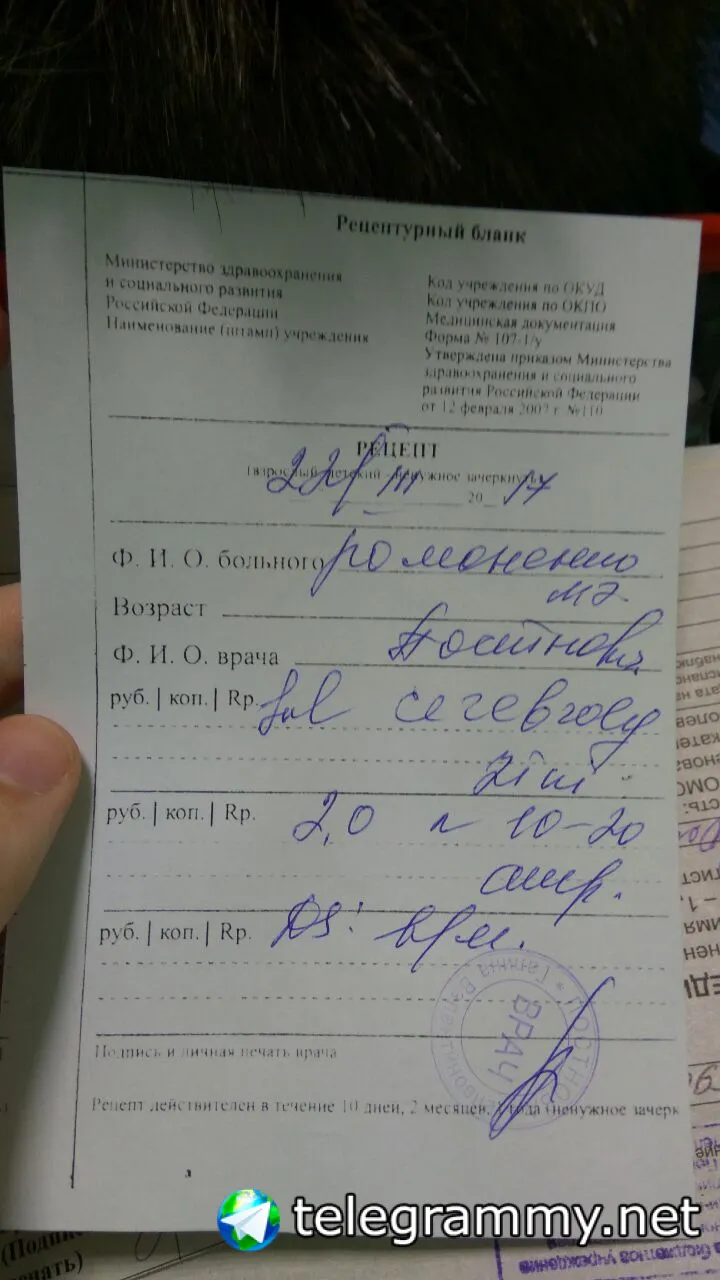 Рецептурный бланк
Министерство здравоохранения
и социального развития
Российской Федерации
Наименование (штамп) учреждения
Код учреждения по ОКУД
Код учреждения по ОКПО
Медицинская документация
Форма № 107-1/у
Утверждена приказом Министерства
здравоохранения и социального
развития Российской Федерации
от 12 февраля 2007 г. №110
РЕЦЕПТ
(взрослый, детский - ненужное зачеркнуть)
22/III 2017
Ф. И. О. больного
Возраст
Ф. И. О. врача
руб. | коп. | Rp. Sol
руб. | коп. | Rp. 2,0 n 10-20
амп.
руб. | коп. | Rp. DS: в/м.
ВРАЧ
Подпись и личная печать врача
Рецепт действителен в течение 10 дней, 2 месяцев, 1 года (ненужное зачерк
telegrammy.net